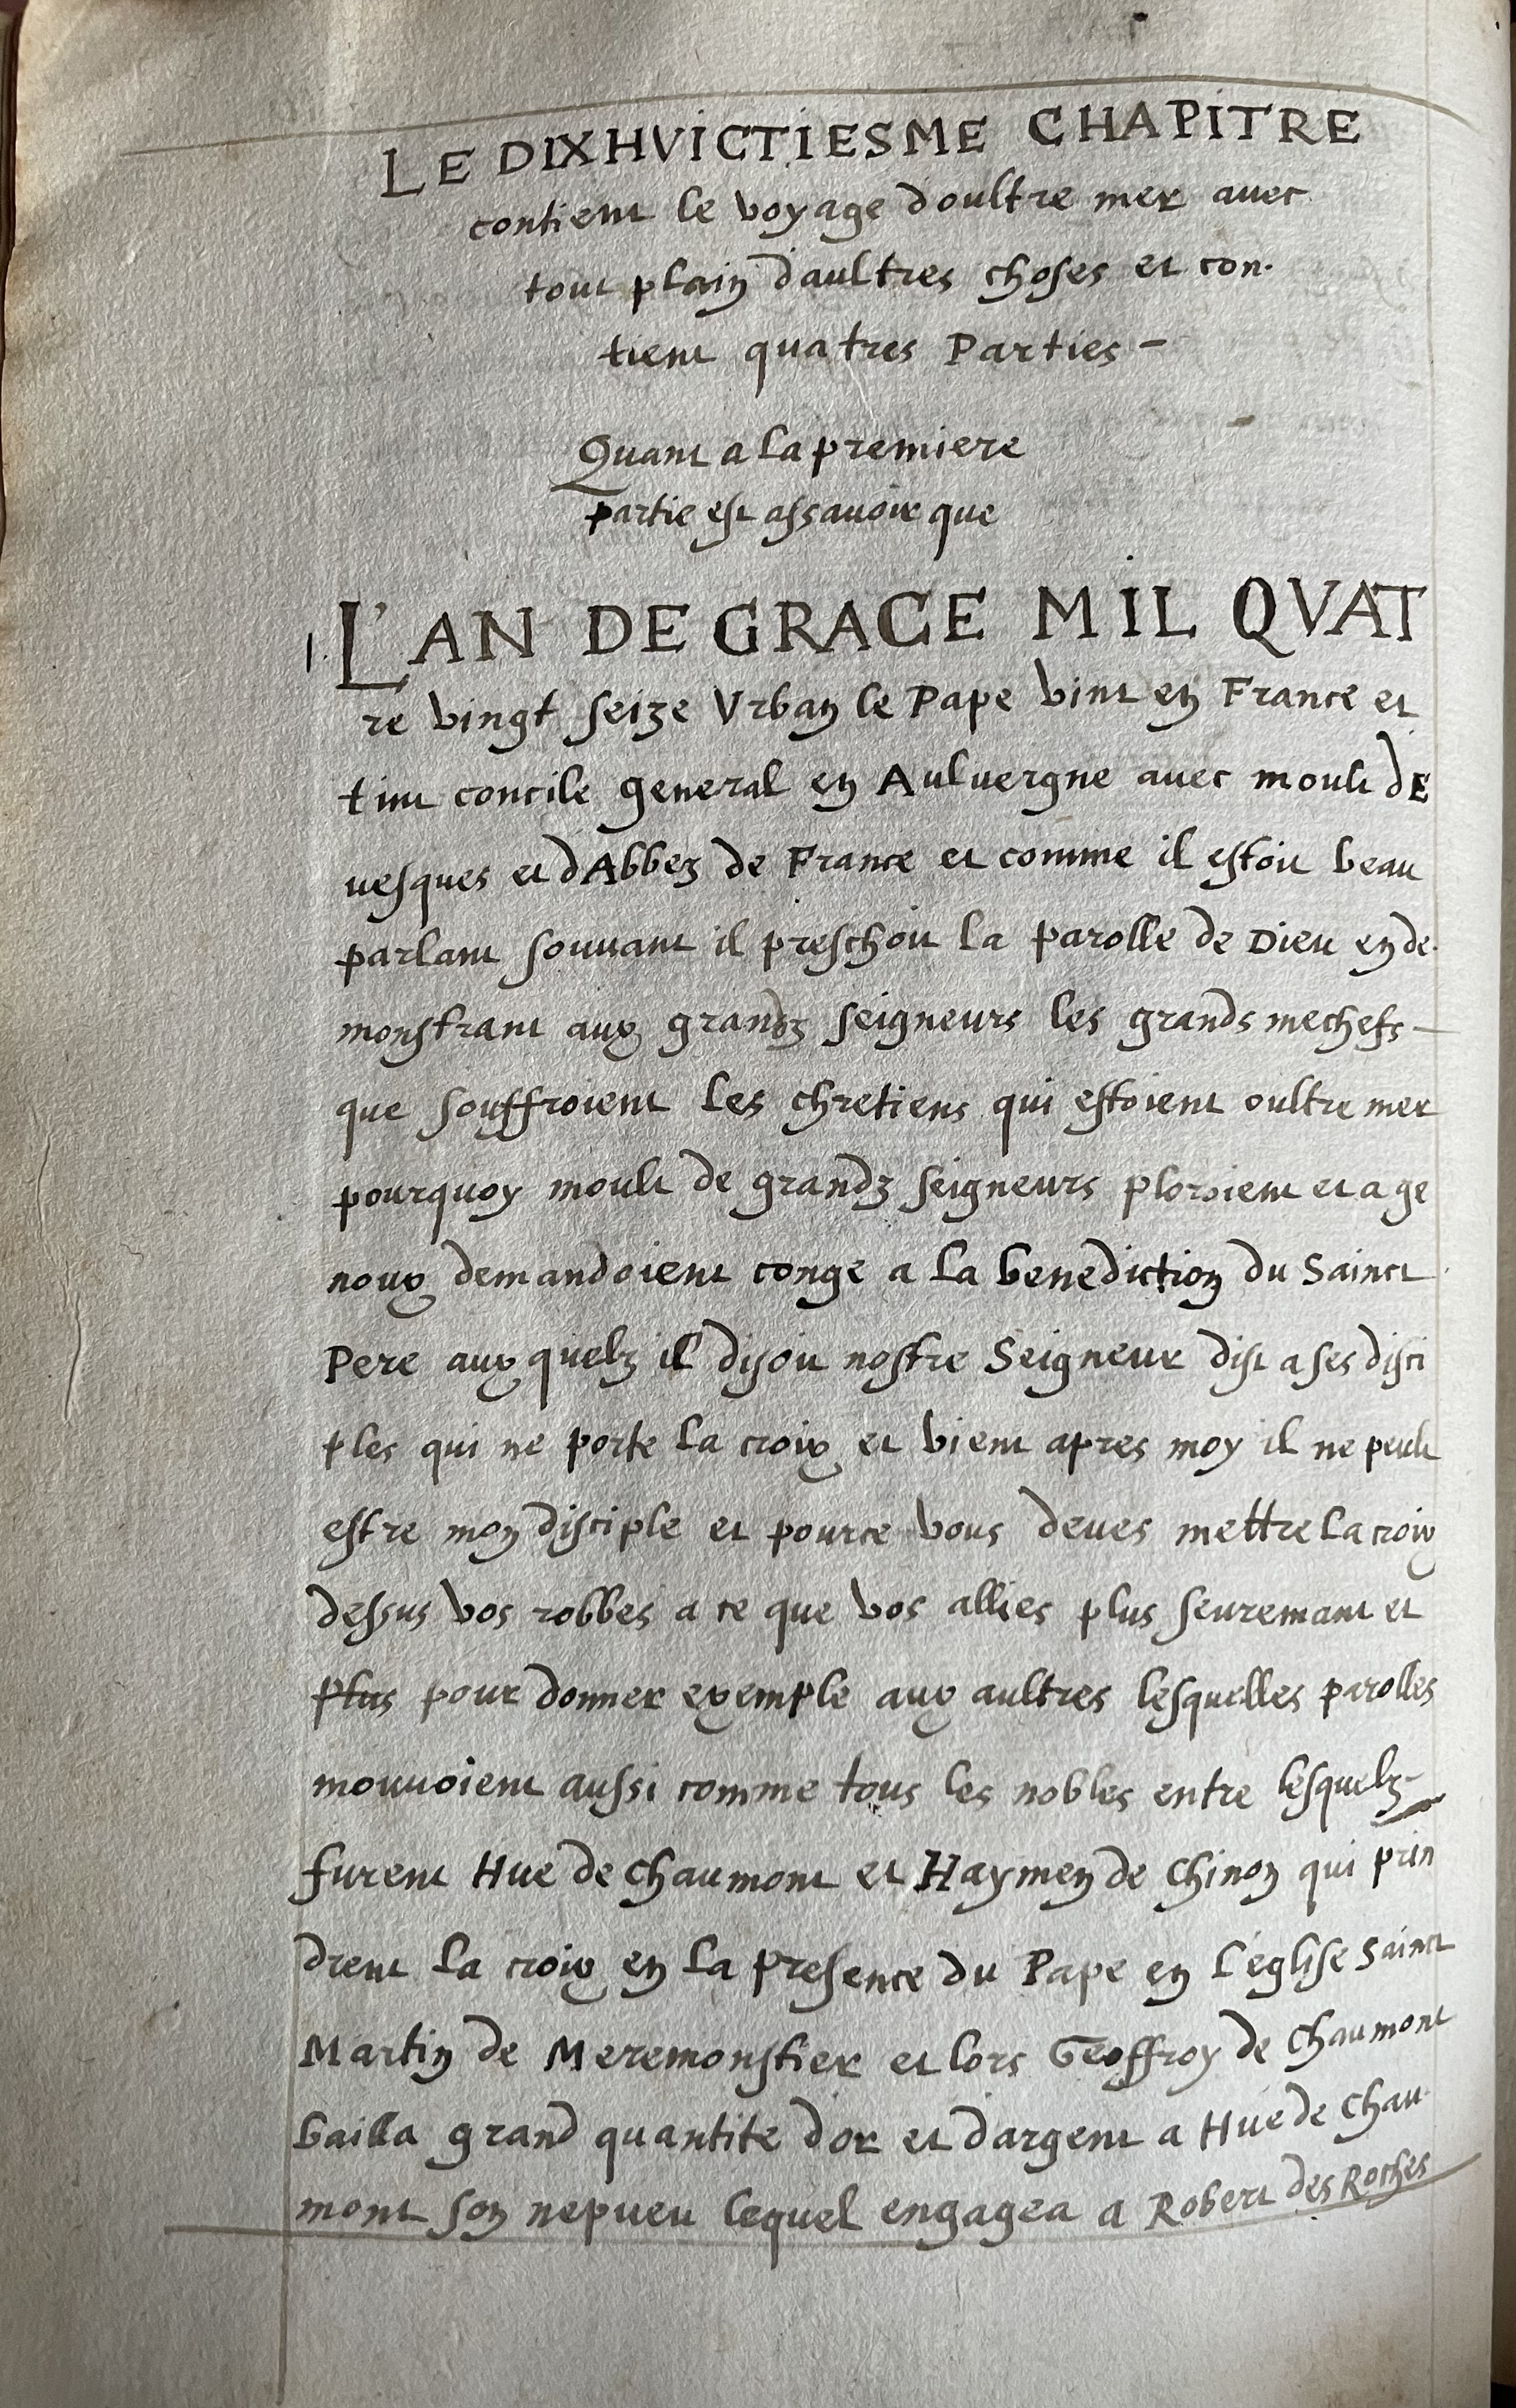 LE DIXHVICTIESME CHAPITRE
contient le voyage doultre mer avec
tout plain daultres choses et con-
tient quatres Parties -
Quant a la premiere
partie est assavoir que
1. L'AN DE GRACE MIL QVAT
re vingt seize Vrban le Pape vint en France et
tint concile general en Aulvergne avec moult dE
uesques et dAbbez de France et comme il estoit beau
parlant souuant il preschoit la parolle de Dieu en de-
monstrant aux grandz seigneurs les grands mechefs -
que souffroient les chretiens qui estoient oultre mer
pourquoy moult de grandz seigneurs ploroient et a ge
noux demandoient conge a la benediction du Sainct
Pere aux quelz il disoit nostre Seigneur dist a ses disci
ples qui ne porte la croix et vient apres moy il ne peult
estre mon disciple et pource vous deues mettre la croix
dessus vos robbes a ce que vos allies plus seuremant et
plus pour donner exemple aux aultres lesquelles parolles
mouuoient aussi comme tous les nobles entre lesquelz -
furent Hue de Chaumont et Haymen de Chinon qui prin
drent la croix en la presence du Pape en l'eglise Sainct
Martin de Meremonstier et lors Geoffroy de Chaumont
bailla grand quantite d'or et dargent a Hue de Chau
mont son nepueu lequel engagea a Robert des Roches